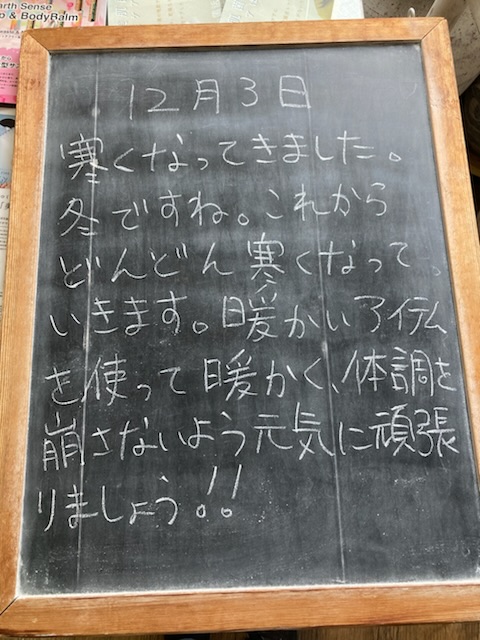 arth Sense
& BodyBalm
12月3日
寒くなってきました。
冬ですね。これから
どんどん寒くなって
いきます。暖かいアイテム
を使って暖かく、体調を
崩さないよう元気に頑張
りましょう!!